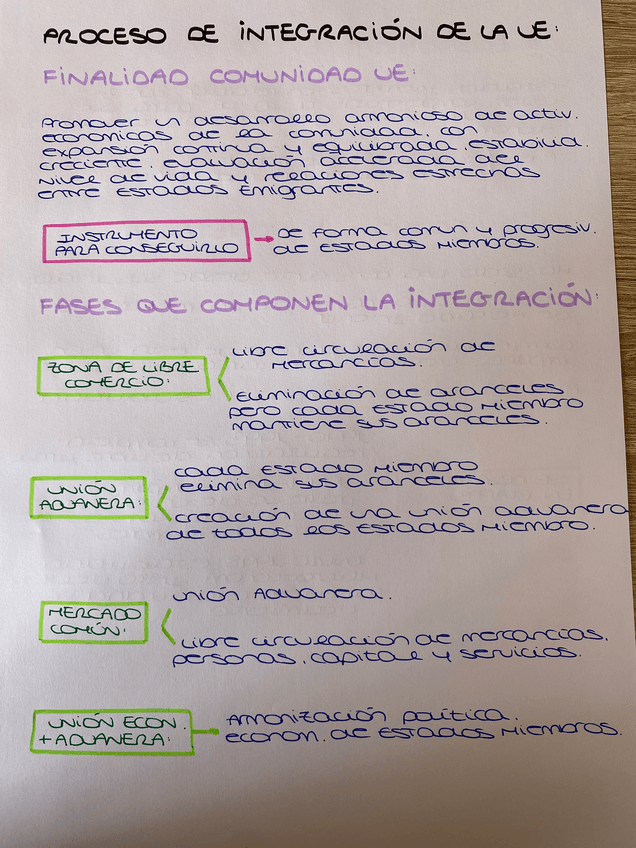 PROCESO DE INTEGRACIÓN DE LA UE:
FINALIDAD COMUNIDAD UE:
Promover un desarrollo armonioso de activ.
económicas de la comunidad, con
expansión continua y equilibrada, estabilid.
creciente, evaluación acelerada del
nivel de vida y relaciones estrechas
entre Estados Emigrantes.
INSTRUMENTO
PARA CONSEGUIRLO
De forma comun y progresiv.
de ESTADOS MIEMBROS.
FASES QUE COMPONEN LA INTEGRACIÓN:
ZONA DE LIBRE
COMERCIO:
Libre circulación de
Mercancías.
Eliminación de aranceles
pero cada ESTADO MIEMBRO
mantiene sus aranceles.
UNIÓN
ADUANERA:
cada ESTADO MIEMBRO
elimina sus aranceles.
creación de una unión aduanera
de todos los ESTADOS MIEMBRO.
MERCADO
COMÚN:
unión Aduanera.
Libre circulación de mercancías,
personas, capital y servicios.
UNIÓN ECON.
+ ADUANERA:
Armonización política,
económ. de ESTADOS MIEMBROS.